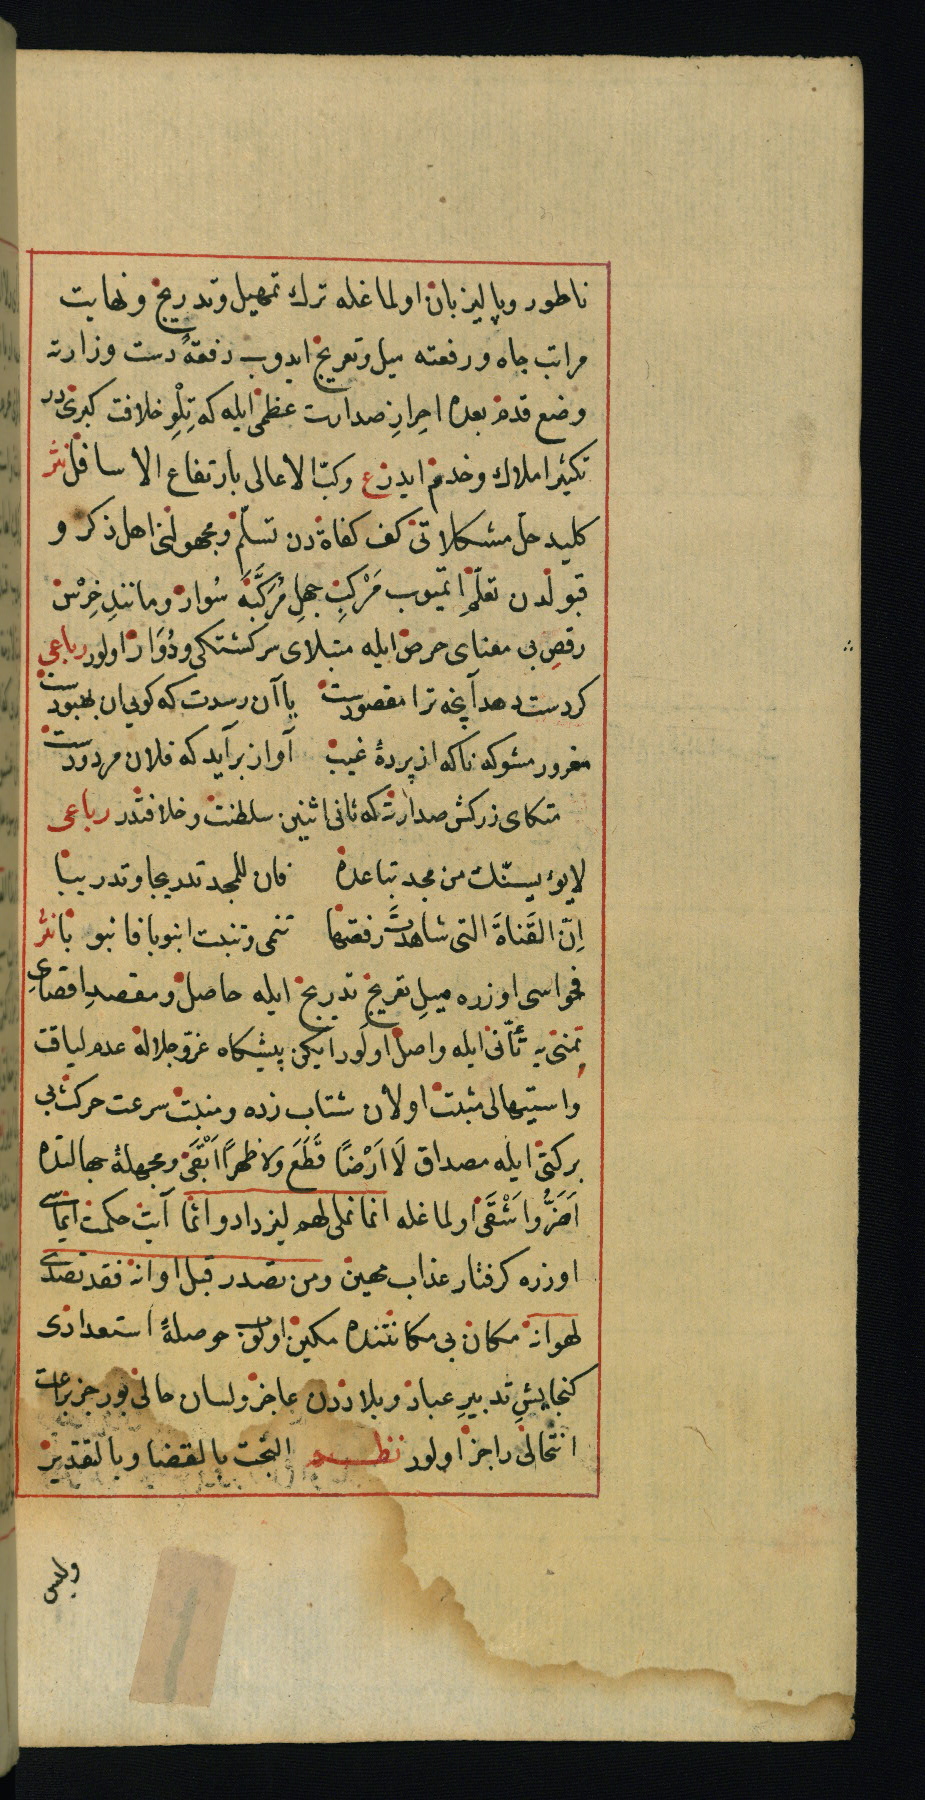 ناطور وپاليزبان اولماغله ترك تمهيل وتدريج ونهايت
مراتب جاه ورفعته ميل وتعريج ايدوب دفعةً دست وزارته
وضع قدم بعده احرازِ صدارت عظمى ايله كه تِلْوِ خلافت كبرى در
تكثير املاك وخدم ايدر ع وكبّ الاعالى بارتفاع الاسافل نثر
كليد حل مشكلاتى كف كفاة دن تسلّم ومجهولنى اهل ذكر و
قبولدن تعلّم ايتميوب مَرْكبِ جهلِ مُرَكَّبَه سُوار ومانندِ خِرْس
رقصِ بى معناى حرص ايله مبتلاى سركشتكى ودُوَار اولور رباعى
كردست دهد آنچه ترا مقصودست يا آن رسدت كه كويى ان بهبودست
مغرور مشو كه ناكه از پردۀ غيب آواز برآيد كه فلان مردودست
متكاى زركش صدارته كه ثانى اثنين سلطنت وخلافتدر رباعى
لا يوٴيسنّك من مجد تباعده فان للمجد تدريجا وتدريبا
اِنّ القَناةَ التى شاهدتَ رفعتها تنمى وتنبت انبوبا فانبوبا نثر
فحواسى اوزره ميلِ تعريج تدريج ايله حاصل ومقصدِ اقصاىِ
تمنى يه تأنّى ايله واصل اولور ايكن پيشكاه عزّ وجلاله عدم لياقت
واستيهالى مثبت اولان شتاب زده ومنبت سرعت حركت بى
بركتى ايله مصداق لَا اَرْضًا قَطَعَ ولا ظهرًا اَبْقَى ومجهلۀ جهالتده
اَضَرُّ واَشْقَى اولماغله انما نملى لهم ليزدادوا اثما آيت حكمت ايماسى
اوزره كرفتار عذاب مهين ومن تصدر قبل اوانه فقد تصدى
لهوانه مكان بى مكانتنده مكين اولوب حوصلۀ استعدادى
كنجايشِ تدبيرِ عباد وبلاددن عاجز ولسان حالى بو رجز براعت
انتحالى راجز اولور نظم البخت بالقضا وبالتقدير
وليس